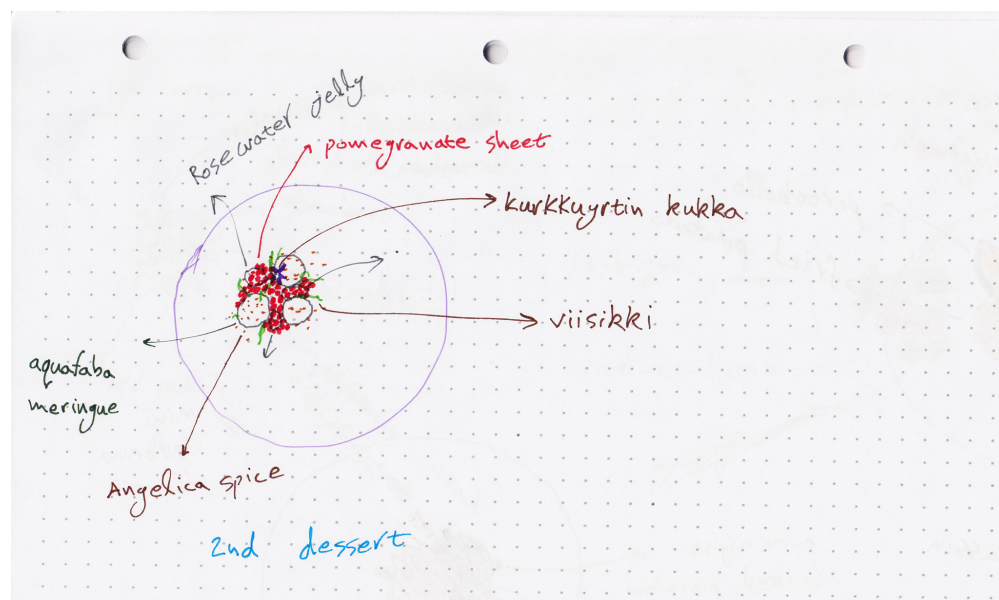 Rosewater jelly
pomegranate sheet
kurkkuyrtin kukka
viisikki
aquafaba
meringue
Angelica spice
2nd dessert